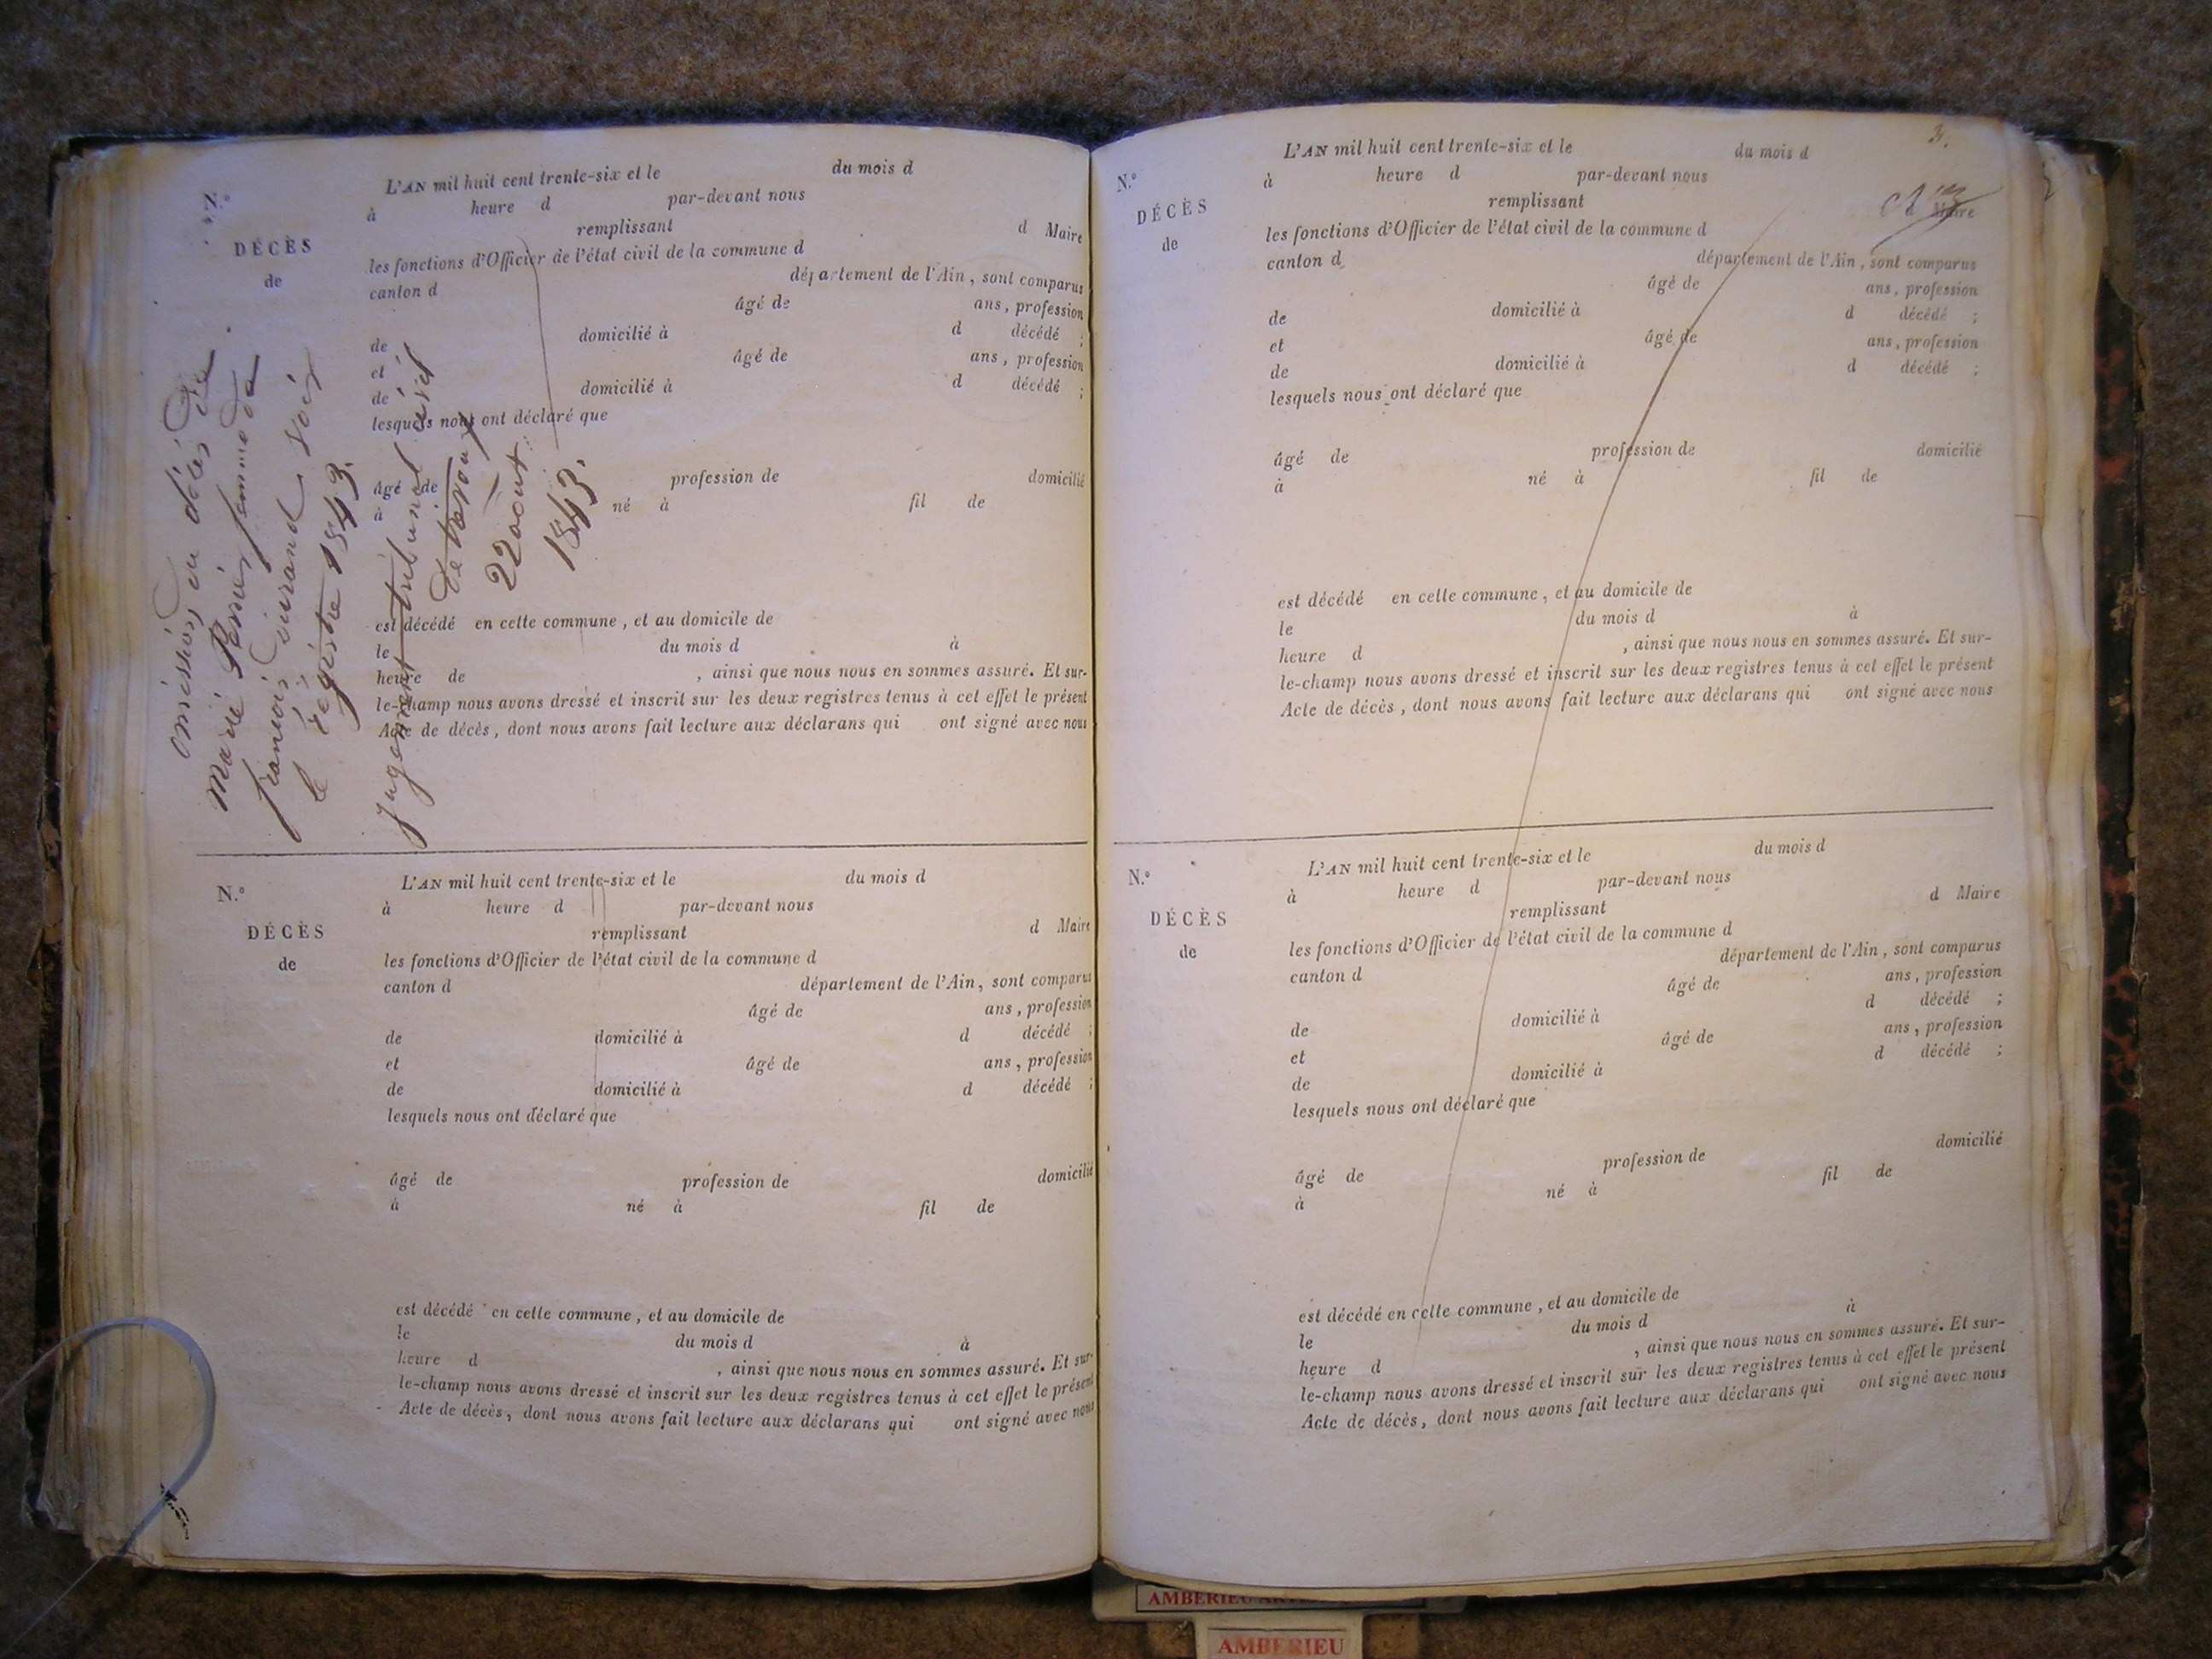 N.°
DÉCÈS
de
L'AN mil huit cent trente-six et le du mois d
à heure d par-devant nous
remplissant d Maire
les fonctions d'Officier de l'état civil de la commune d
canton d département de l'Ain, sont comparus
âgé de ans, profession
de domicilié à d décédé ;
et âgé de ans, profession
de domicilié à d décédé ;
lesquels nous ont déclaré que
âgé de profession de domicilié
à né à fil de
est décédé en cette commune, et au domicile de
le du mois d à
heure de , ainsi que nous nous en sommes assuré. Et sur-
le-champ nous avons dressé et inscrit sur les deux registres tenus à cet effet le présent
Acte de décès, dont nous avons fait lecture aux déclarans qui ont signé avec nous
omission du décès de
Marie femme de
françois voir
le registre 1843.
jugement tribunal civil
de trévoux
22 aout
1843.
N.°
DÉCÈS
de
L'AN mil huit cent trente-six et le du mois d
à heure d par-devant nous
remplissant d Maire
les fonctions d'Officier de l'état civil de la commune d
canton d département de l'Ain, sont comparus
âgé de ans, profession
de domicilié à d décédé ;
et âgé de ans, profession
de domicilié à d décédé ;
lesquels nous ont déclaré que
âgé de profession de domicilié
à né à fil de
est décédé en cette commune, et au domicile de
le du mois d à
heure d , ainsi que nous nous en sommes assuré. Et sur-
le-champ nous avons dressé et inscrit sur les deux registres tenus à cet effet le présent
Acte de décès, dont nous avons fait lecture aux déclarans qui ont signé avec nous
3.
N.°
DÉCÈS
de
L'AN mil huit cent trente-six et le du mois d
à heure d par-devant nous
remplissant d Maire
les fonctions d'Officier de l'état civil de la commune d
canton d département de l'Ain, sont comparus
âgé de ans, profession
de domicilié à d décédé ;
et âgé de ans, profession
de domicilié à d décédé ;
lesquels nous ont déclaré que
âgé de profession de domicilié
à né à fil de
est décédé en cette commune, et au domicile de
le du mois d à
heure d , ainsi que nous nous en sommes assuré. Et sur-
le-champ nous avons dressé et inscrit sur les deux registres tenus à cet effet le présent
Acte de décès, dont nous avons fait lecture aux déclarans qui ont signé avec nous
N.°
DÉCÈS
de
L'AN mil huit cent trente-six et le du mois d
à heure d par-devant nous
remplissant d Maire
les fonctions d'Officier de l'état civil de la commune d
canton d département de l'Ain, sont comparus
âgé de ans, profession
de domicilié à d décédé ;
et âgé de ans, profession
de domicilié à d décédé ;
lesquels nous ont déclaré que
âgé de profession de domicilié
à né à fil de
est décédé en cette commune, et au domicile de
le du mois d à
heure d , ainsi que nous nous en sommes assuré. Et sur-
le-champ nous avons dressé et inscrit sur les deux registres tenus à cet effet le présent
Acte de décès, dont nous avons fait lecture aux déclarans qui ont signé avec nous
AMBERIEU
AMBERIEU